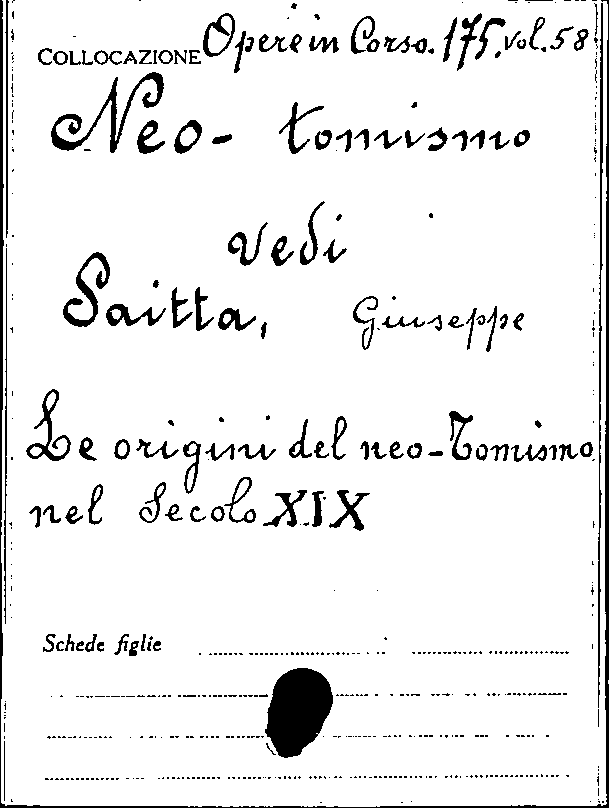 COLLOCAZIONE Opere in Corso. 175. vol. 58
Neo- tomismo
vedi
Saitta, Giuseppe
Le origini del neo-Tomismo
nel Secolo XIX
Schede figlie